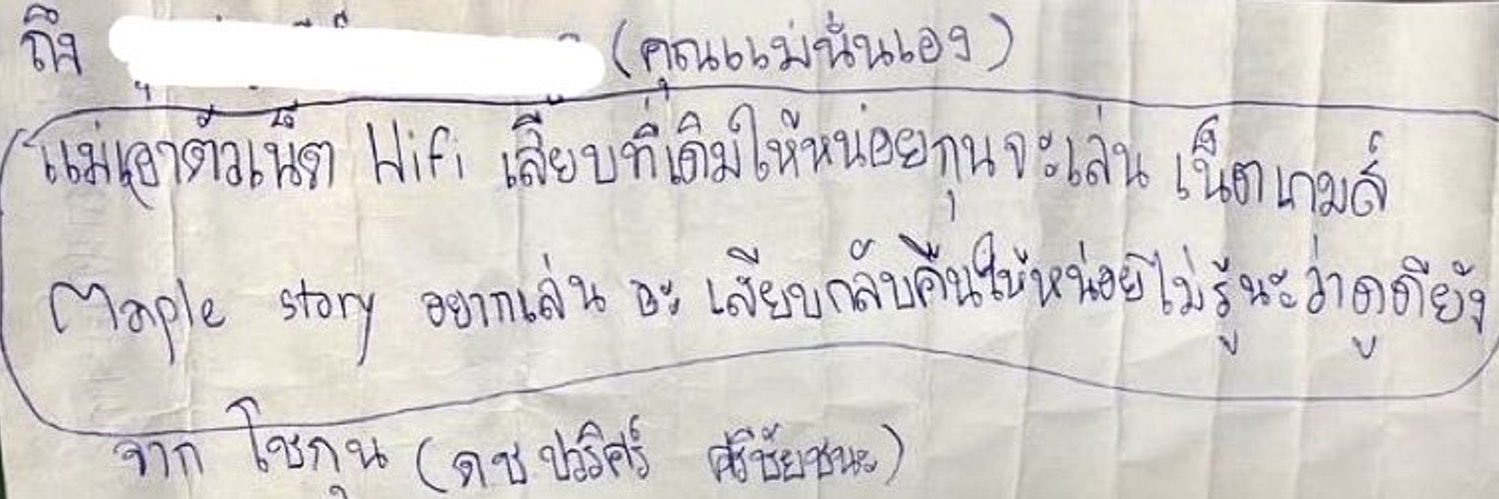 ถึง (คุณแม่นั่นเอง)
แม่เอาตัวเน็ต Wifi เสียบที่เดิมให้หน่อยกุนจะเล่น เน็ตเกมส์
Maple story อยากเล่น อะ เสียบกลับคืนให้หน่อยไม่รู้นะว่าดูดียัง
จาก โชกุน (ด ช ปวริศร์ ศรีชัยชนะ)